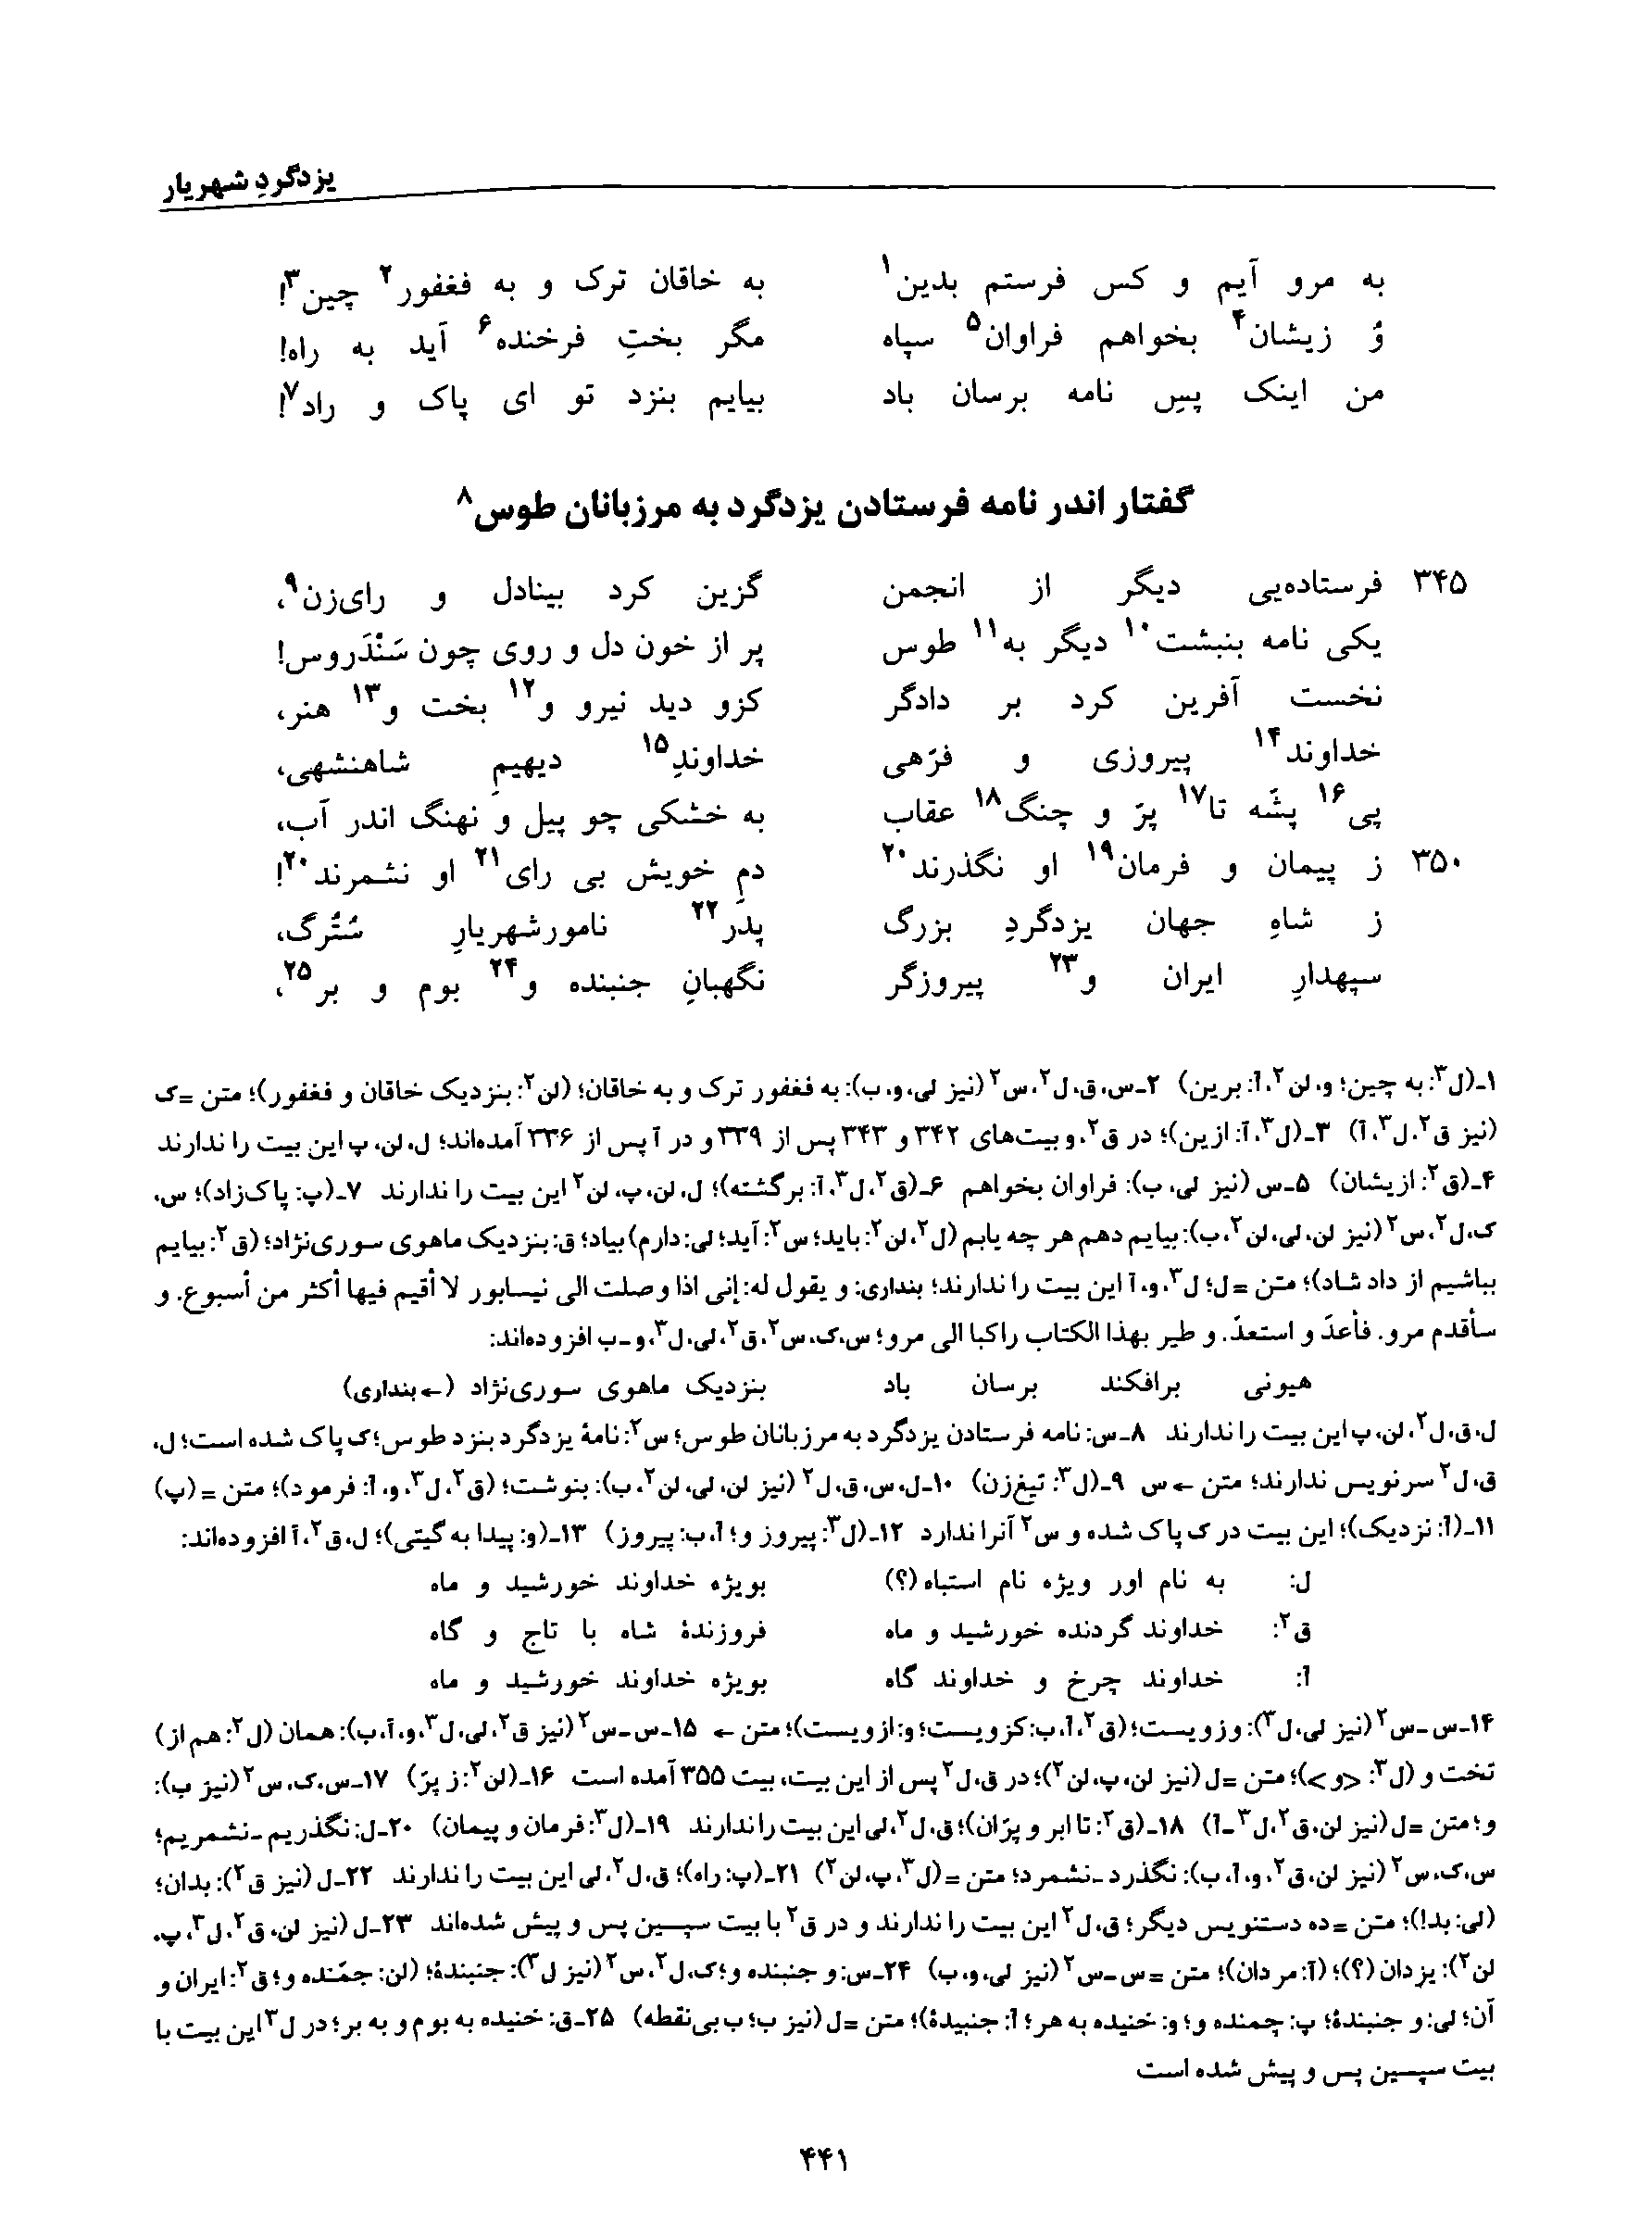 یزدگردِ شهریار
به مرو آیم و کس فرستم بدین۱ به خاقان ترک و به فغفور۲ چین۳!
وُ زیشان۴ بخواهم فراوان۵ سپاه مگر بختِ فرخنده۶ آید به راه!
من اینک پسِ نامه برسان باد بیایم بنزد تو ای پاک و راد۷!
گفتار اندر نامه فرستادن یزدگرد به مرزبانان طوس۸
۳۴۵ فرستاده‌یی دیگر از انجمن گزین کرد بینادل و رای‌زن۹،
یکی نامه بنبشت۱۰ دیگر به۱۱ طوس پر از خون دل و روی چون سَنْدَروس!
نخست آفرین کرد بر دادگر کزو دید نیرو و۱۲ بخت و۱۳ هنر،
خداوند۱۴ پیروزی و فرّهی خداوندِ۱۵ دیهیمِ شاهنشهی،
پی۱۶ پشّه تا۱۷ پرّ و چنگ۱۸ عقاب به خشکی چو پیل و نهنگ اندر آب،
۳۵۰ ز پیمان و فرمان۱۹ او نگذرند۲۰ دمِ خویش بی رای۲۱ او نشمرند۲۰!
ز شاهِ جهان یزدگردِ بزرگ پدر۲۲ نامورشهریارِ سُتُرگ،
سپهدارِ ایران و۲۳ پیروزگر نگهبانِ جنبنده و۲۴ بوم و بر۲۵،
۱ـ(ل۳: به چین؛ و، لن۲، آ: برین) ۲ـس، ق، ل۲، س۲ (نیز لی، و، ب): به فغفور ترک و به خاقان؛ (لن۲: بنزدیک خاقان و فغفور)؛ متن =ک
(نیز ق۲، ل۳، آ) ۳ـ(ل۳، آ: ازین)؛ در ق۲، و بیت‌های ۳۴۲ و ۳۴۳ پس از ۳۳۹ و در آ پس از ۳۳۶ آمده‌اند؛ ل، لن، پ این بیت را ندارند
۴ـ(ق۲: ازیشان) ۵ـس (نیز لی، ب): فراوان بخواهم ۶ـ(ق۲، ل۳، آ: برگشته)؛ ل، لن، پ، لن۲ این بیت را ندارند ۷ـ(پ: پاک‌زاد)؛ س،
ک، ل۲، س۲ (نیز لن، لی، لن۲، ب): بیایم دهم هر چه یابم (ل۲، لن۲: باید؛ س۲: آید؛ لی: دارم) بیاد؛ ق: بنزدیک ماهوی سوری‌نژاد؛ (ق۲: بیایم
بباشیم از داد شاد)؛ متن =ل؛ ل۳، و، آ این بیت را ندارند؛ بنداری: و یقول له: إنی اذا وصلت الی نیسابور لا أقیم فیها أکثر من أسبوع. و
سأقدم مرو. فأعدّ و استعدّ. و طیر بهذا الکتاب راکبا الی مرو؛ س، ک، س۲، ق۲، لی، ل۳، و ـ ب افزوده‌اند:
هیونی برافکند برسان باد بنزدیک ماهوی سوری‌نژاد (← بنداری)
ل، ق، ل۲، لن، پ این بیت را ندارند ۸ـس: نامه فرستادن یزدگرد به مرزبانان طوس؛ س۲: نامهٔ یزدگرد بنزد طوس؛ ک پاک شده است؛ ل،
ق، ل۲ سرنویس ندارند؛ متن ← س ۹ـ(ل۳: تیغ‌زن) ۱۰ـل، س، ق، ل۲ (نیز لن، لی، لن۲، ب): بنوشت؛ (ق۲، ل۳، و، آ: فرمود)؛ متن = (پ)
۱۱ـ(آ: نزدیک)؛ این بیت در ک پاک شده و س۲ آنرا ندارد ۱۲ـ(ل۳: پیروز و؛ آ، ب: پیروز) ۱۳ـ(و: پیدا به گیتی)؛ ل، ق۲، آ افزوده‌اند:
ل: به نام اور ویژه نام استباه(؟) بویژه خداوند خورشید و ماه
ق۲: خداوند گردنده خورشید و ماه فروزندهٔ شاه با تاج و گاه
آ: خداوند چرخ و خداوند گاه بویژه خداوند خورشید و ماه
۱۴ـس ـ س۲ (نیز لی، ل۳): وزویست؛ (ق۲، آ، ب: کزویست؛ و: ازویست)؛ متن ← ۱۵ـس ـ س۲ (نیز ق۲، لی، ل۳، و، آ، ب): همان (ل۲: هم از)
تخت و (ل۳: <و>)؛ متن =ل (نیز لن، پ، لن۲)؛ در ق، ل۲ پس از این بیت، بیت ۳۵۵ آمده است ۱۶ـ(لن۲: ز پرّ) ۱۷ـس، ک، س۲ (نیز ب):
و؛ متن =ل (نیز لن، ق۲، ل۳ ـ آ) ۱۸ـ(ق۲: تا ابر و پرّان)؛ ق، ل۲، لی این بیت را ندارند ۱۹ـ(ل۳: فرمان و پیمان) ۲۰ـل: نگذریم ـ نشمریم؛
س، ک، س۲ (نیز لن، ق۲، و، آ، ب): نگذرد ـ نشمرد؛ متن = (ل۳، پ، لن۲) ۲۱ـ(پ: راه)؛ ق، ل۲، لی این بیت را ندارند ۲۲ـل (نیز ق۲): بدان؛
(لی: بد!)؛ متن =ده دستنویس دیگر؛ ق، ل۲ این بیت را ندارند و در ق۲ با بیت سپسین پس و پیش شده‌اند ۲۳ـل (نیز لن، ق۲، ل۳، پ،
لن۲): یزدان (؟)؛ (آ: مردان)؛ متن =س ـ س۲ (نیز لی، و، ب) ۲۴ـس: و جنبنده و؛ ک، ل۲، س۲ (نیز ل۳): جنبندهٔ؛ (لن: جمّنده و؛ ق۲: ایران و
آن؛ لی: و جنبندهٔ؛ پ: چمنده و؛ و: خنیده به هر؛ آ: جنبیدهٔ)؛ متن =ل (نیز ب؛ ب بی‌نقطه) ۲۵ـق: خنیده به بوم و به بر؛ در ل۳ این بیت با
بیت سپسین پس و پیش شده است
۴۴۱